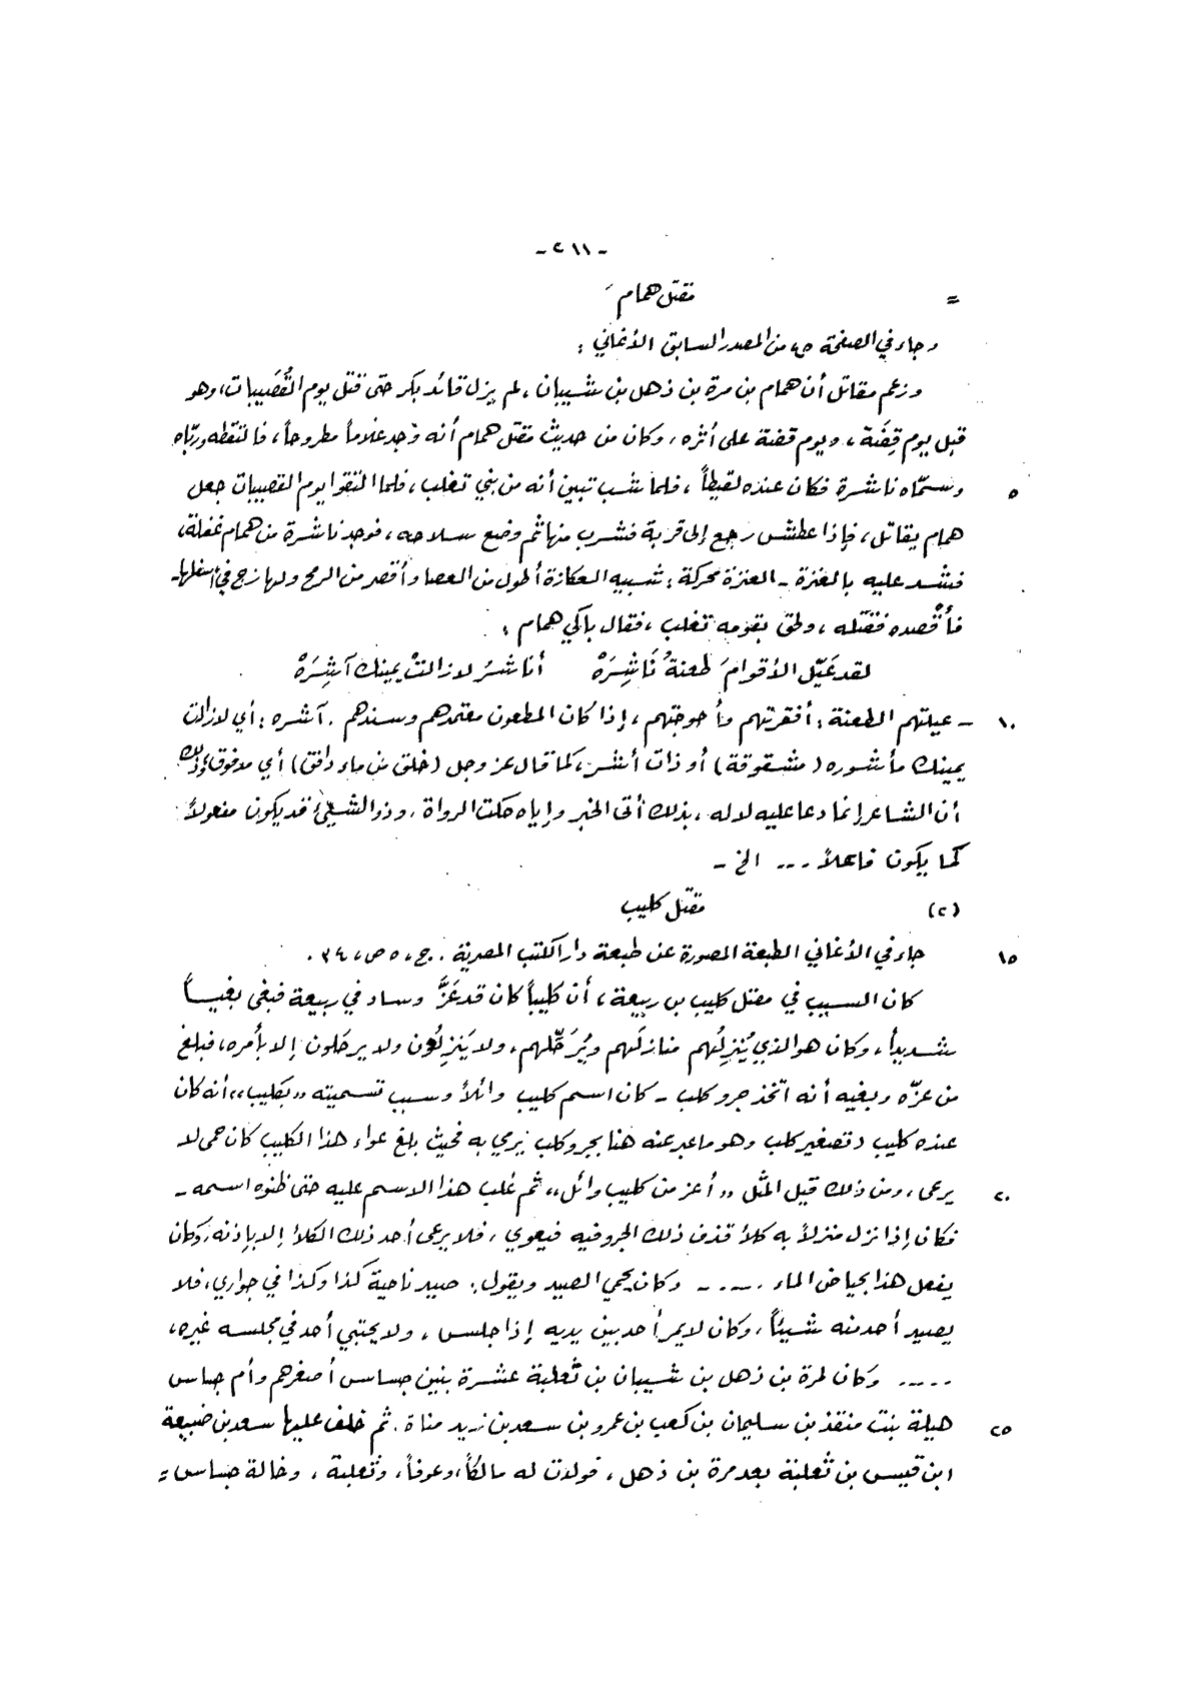 - ٢١١ -
= مقتل همام
وجاء في الصفحة ص، من المصدر السابق الأغاني :
وزعم مقاتل أن همام بن مرة بن ذهل بن شيبان، لم يزل قائد بكر حتى قتل يوم القُصَيبات، وهو
قبل يوم قِضَة، ويوم قضة على أثره، وكان من حديث مقتل همام أنه وَجد غلاماً مطروحاً، فالتقطه وربّاه
٥ وسمّاه ناشرة فكان عنده لقيطاً، فلما شب تبين أنه من بني تغلب، فلما التقوا يوم القصيبات جعل
همام يقاتل، فإذا عطش رجع إلى قربة فشرب منها ثم وضع سلاحه، فوجد ناشرة من همام غفلة،
فشد عليه بالعنزة - العنزة محركة: شبيه العكازة أطول من العصا وأقصر من الرمح ولها زج في أسفلها -
فأُقْصده فقتله، ولحق بقومه تغلب، فقال باكي همام :
لقد عَيّل الأقوامَ طعنةُ نَاشِرَهْ أناشرُ لا زالتْ يمينك آشِرَهْ
١٠ - عيلتهم الطعنة: أفقرتهم وأحوجتهم، إذا كان المطعون معتمدهم وسندهم. آشره: أي لا زالت
يمينك مأشوره (مشقوقة) أو ذات أشر، كما قال عز وجل (خلق من ماء دافق) أي مدفوق، وذلك
أن الشاعر إنما دعا عليه لا له، بذلك أتى الخبر وإياه حكت الرواة، وذو الشيئ قد يكون مفعولاً
كما يكون فاعلاً ... الخ -
(٢) مقتل كليب
١٥ جاء في الأغاني الطبعة المصورة عن طبعة دار الكتب المصرية. ج، ٥ ص، ٣٤.
كان السبب في مقتل كليب بن ربيعة، أن كليباً كان قد عَزَّ وساد في ربيعة فبغى بغياً
شديداً، وكان هو الذي يُنزِلُهم منازلَهم ويُرَحِّلهم، ولا يَنزِلُون ولا يرحَلون إلا بأمره، فبلغ
من عزّه وبغيه أنه اتخذ جرو كلب - كان اسم كليب وائلاً وسبب تسميته ,,بكليب،، أنه كان
عنده كليب (تصغير كلب وهو ما عبر عنه هنا بجرو كلب يرمي به فحيث بلغ عواء هذا الكليب كان حمى لا
٢٠ يرعى، ومن ذلك قيل المثل ,, أعز من كليب وائل،، ثم غلب هذا الاسم عليه حتى ظنوه اسمه -
فكان إذا نزل منزلاً به كلأ قذف ذلك الجرو فيه فيعوي، فلا يرعى أحد ذلك الكلأ إلا بإذنه، وكان
يفعل هذا بحياض الماء ..... وكان يحمي الصيد ويقول: صيد ناحية كذا وكذا في جواري، فلا
يصيد أحد منه شيئاً، وكان لا يمر أحد بين يديه إذا جلس، ولا يحتبي أحد في مجلسه غيره،
..... وكان لمرة بن ذهل بن شيبان بن ثعلبة عشرة بنين جساس أصغرهم وأم جساس
٢٥ هيلة بنت منقذ بن سليمان بن كعب بن عمرو بن سعد بن زيد مناة. ثم خلف عليها سعد بن ضبيعة
ابن قيس بن ثعلبة بعد مرة بن ذهل، فولدت له مالكاً، وعوفاً، وثعلبة، وخالة جساس =